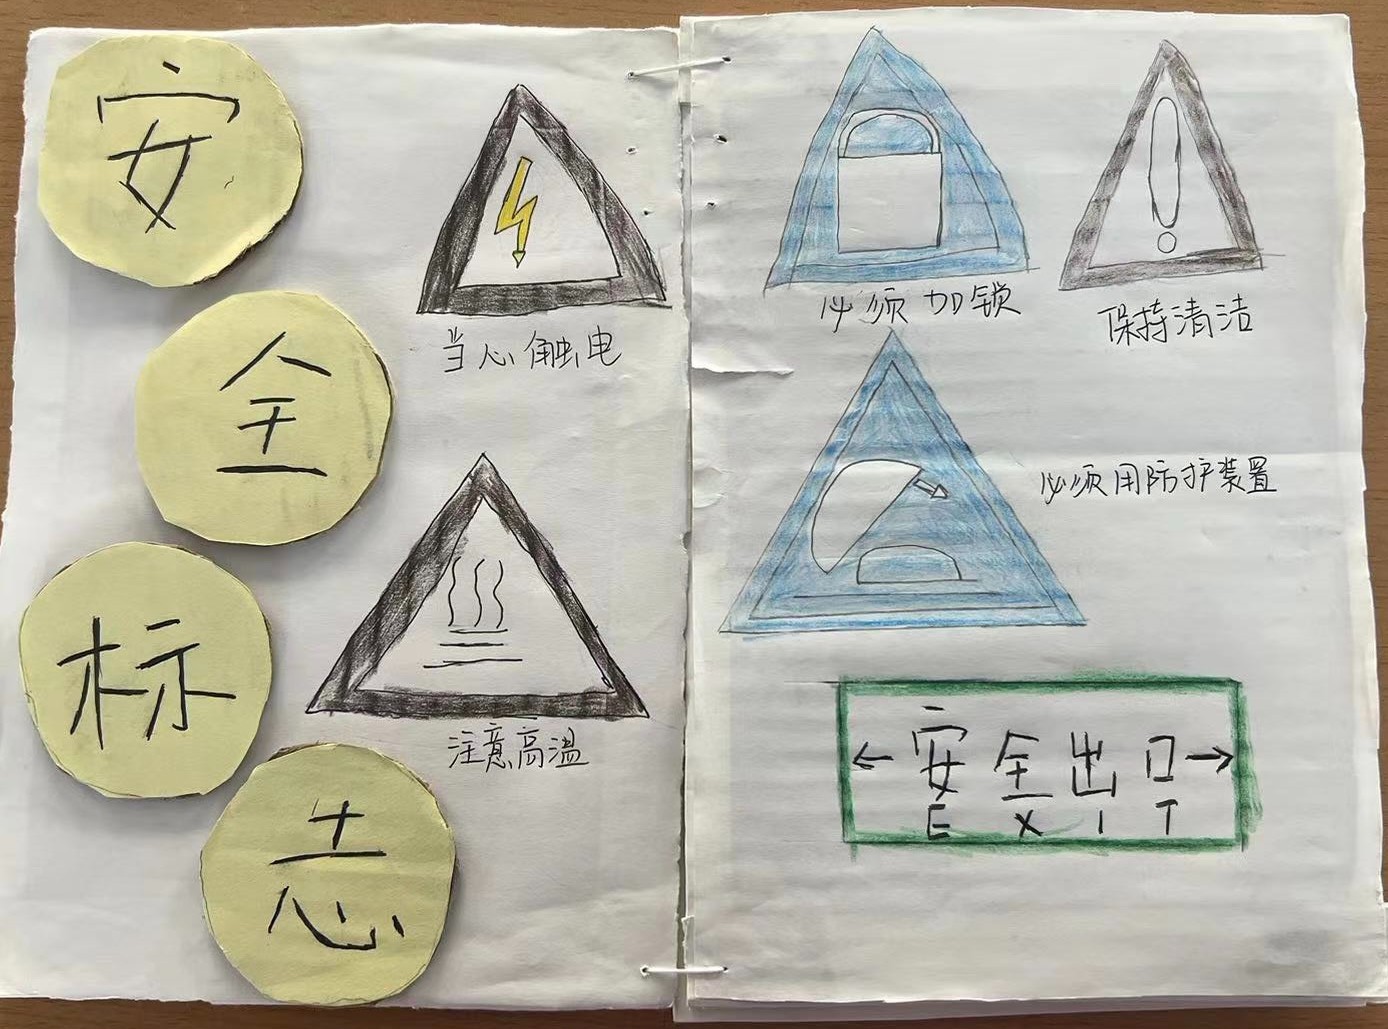 安
全
标
志
当心触电
注意高温
必须加锁
保持清洁
必须用防护装置
←安全出口→
EXIT